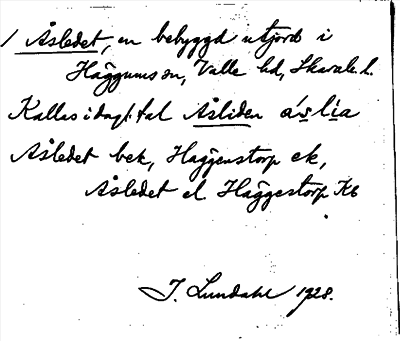 / Åsledet, en bebyggd utjord i
Häggums sn, Valle hd, Skarab. l.
Kallas i dagl. tal Åsliden
Åsledet bek, Häggestorp ek,
Åsledet el. Häggestorp Kb
J. Lundahl 1928.